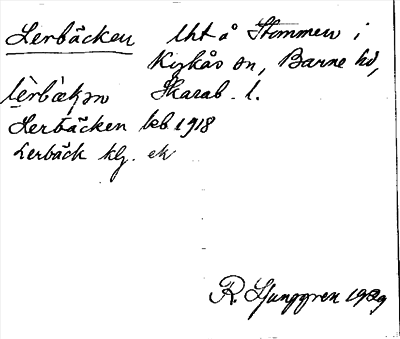 Lerbäcken lht å Stommen i
Kyrkås sn, Barne hd,
lèrbàkən Skarab. l.
Lerbäcken kb 1918
Lerbäck klg. ek
R. Ljunggren 1929